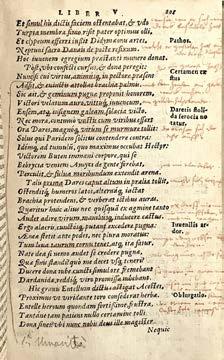 LIBER V. 201
Et simul his dictis faciem ostentabat, & udo
Turpia membra fimo. risit pater optimus olli,
Et clypeum efferri iussit Didymaonis artem, Pathos.
Neptuni sacro Danais de poste refixum.
Hoc iuvenem egregium præstanti munere donat.
Post, ubi confecti cursus, & dona peregit:
Nunc si cui virtus, animusq́; in pectore præsens, Certamen cæstus
Adsit, & evinctis attollat brachia palmis.
Sic ait, & geminum pugnæ proponit honorem,
Victori velatum auro, vittisq́; iuvencum:
Ensem, atq; insignem galeam, solatia victo. Daretis stolida ferocia notatur.
Nec mora, continuo vastis cum viribus effert
Ora Dares, magnoq́; virûm se murmure tollit:
Solus qui Paridem solitus contendere contra:
Idemq́; ad tumulum, quo maximus occubat Hector,
Victorem Buten immani corpore, qui se
Bebrycia veniens Amyci de gente ferebat,
Perculit, & fulva moribundum extendit arena.
Talis prima Dares caput altum in prælia tollit,
Ostenditq́; humeros latos, alternaq́; iactat
Brachia protendens, & verberat ictibus auras.
Quæritur huic alius: nec quisquam ex agmine tanto
Audet adire virum, manibusq́; inducere cæstus.
Ergo alacris, cunctosq́; putans excedere pugna, Iuvenilis ardor.
Aeneæ stetit ante pedes, nec plura moratus
Tum læva taurum cornu tenet, atq; ita fatur:
Nate dea si nemo audet se credere pugnæ,
Quæ finis standi? quo me decet usq; teneri?
Ducere dona iube. cuncti simul ore fremebant
Dardanidæ, reddiq́; viro promissa iubebant.
Hic gravis Entellum dictis castigat Acestes,
Proximus ut viridante toro consederat herbæ. Obiurgatio.
Entelle heroum quondam fortissime frustra,
Tantane tam patiens nullo certamine tolli
Dona sines? ubi nunc nobis deus ille magister
Nequic